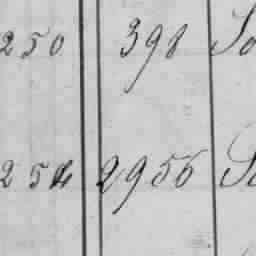 250 398 So
254 2956 So